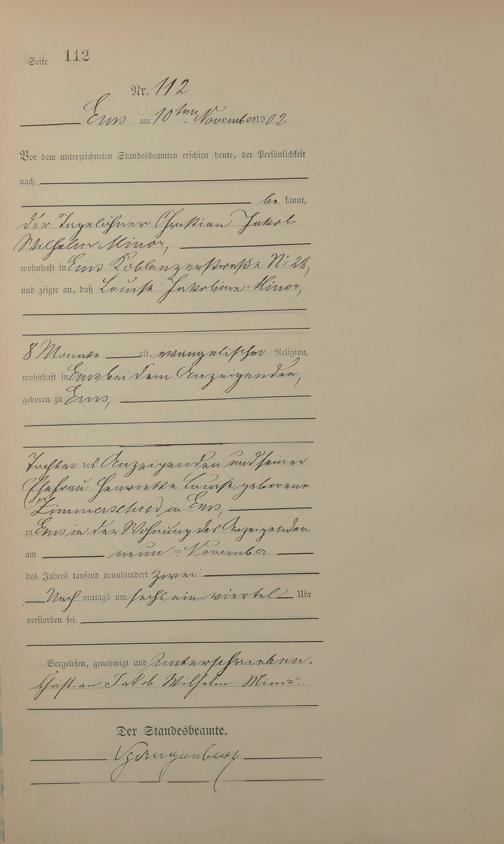 Seite 112
Nr. 112
Ems am 10ten November 1902
Vor dem unterzeichneten Standesbeamten erschien heute, der Persönlichkeit
nach
be kannt,
der Tagelöhner Christian Jakob
Wilhelm Minor,
wohnhaft in Ems Koblenzerstraße No 28,
und zeigte an, daß Louise Jakobine Minor,
8 Monate alt, evangelischer Religion,
wohnhaft in Ems bei dem Anzeigenden,
geboren zu Ems,
Tochter des Anzeigenden und seiner
Ehefrau Henriette Louise geborene
Zimmerschied in Ems,
zu Ems in der Wohnung des Anzeigenden
am neun November
des Jahres tausend neunhundert zwei
Nach mittags um sechs ein viertel Uhr
verstorben sei
Vorgelesen, genehmigt und unterschrieben.
Christian Jakob Wilhelm Minor
Der Standesbeamte.